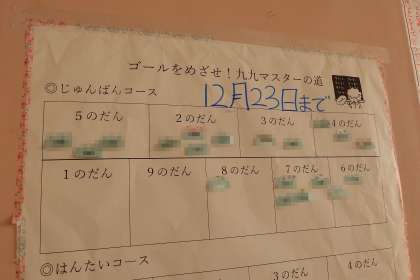 ゴールをめざせ!九九マスターの道
◎じゅんばんコース
12月23日まで
5のだん 2のだん 3のだん 4のだん
1のだん 9のだん 8のだん 7のだん 6のだん
◎はんたいコース
3のだん 4のだん